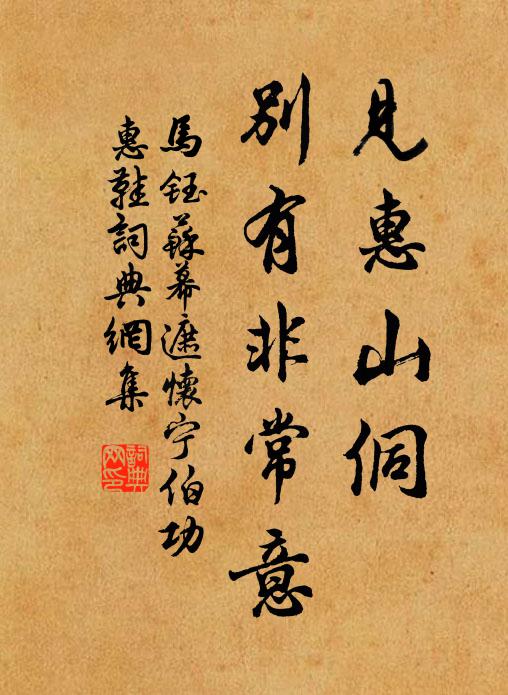 見惠山侗
別有非常意
馬鈺蘇幕遮懷寧伯功
惠鞋詞典網集
詞典網印